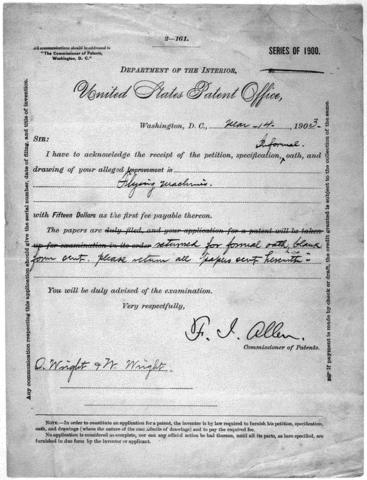 2—161.
All communications should be addressed to
"The Commissioner of Patents,
Washington, D. C."
SERIES OF 1900.
DEPARTMENT OF THE INTERIOR,
United States Patent Office,
WASHINGTON, D. C., Mar-14- 1903.
SIR: Informal
I have to acknowledge the receipt of the petition, specification, oath, and
drawing of your alleged improvement in
Flying Machine.
with Fifteen Dollars as the first fee payable thereon.
The papers are duly filed, and your application for a patent will be taken
up for examination in its order returned for formal oath, blank
form sent. please return all "papers sent herewith"
You will be duly advised of the examination.
Very respectfully,
F. I. Allen.
Commissioner of Patents.
O. Wright & W. Wright.
NOTE.—In order to constitute an application for a patent, the inventor is by law required to furnish his petition, specification,
oath, and drawings (where the nature of the case admits of drawings) and to pay the required fee.
No application is considered as complete, nor can any official action be had thereon, until all its parts, as here specified, are
furnished in due form by the inventor or applicant.
Any communication respecting this application should give the serial number, date of filing, and title of invention.
If payment is made by check or draft, the credit granted is subject to the collection of the same.